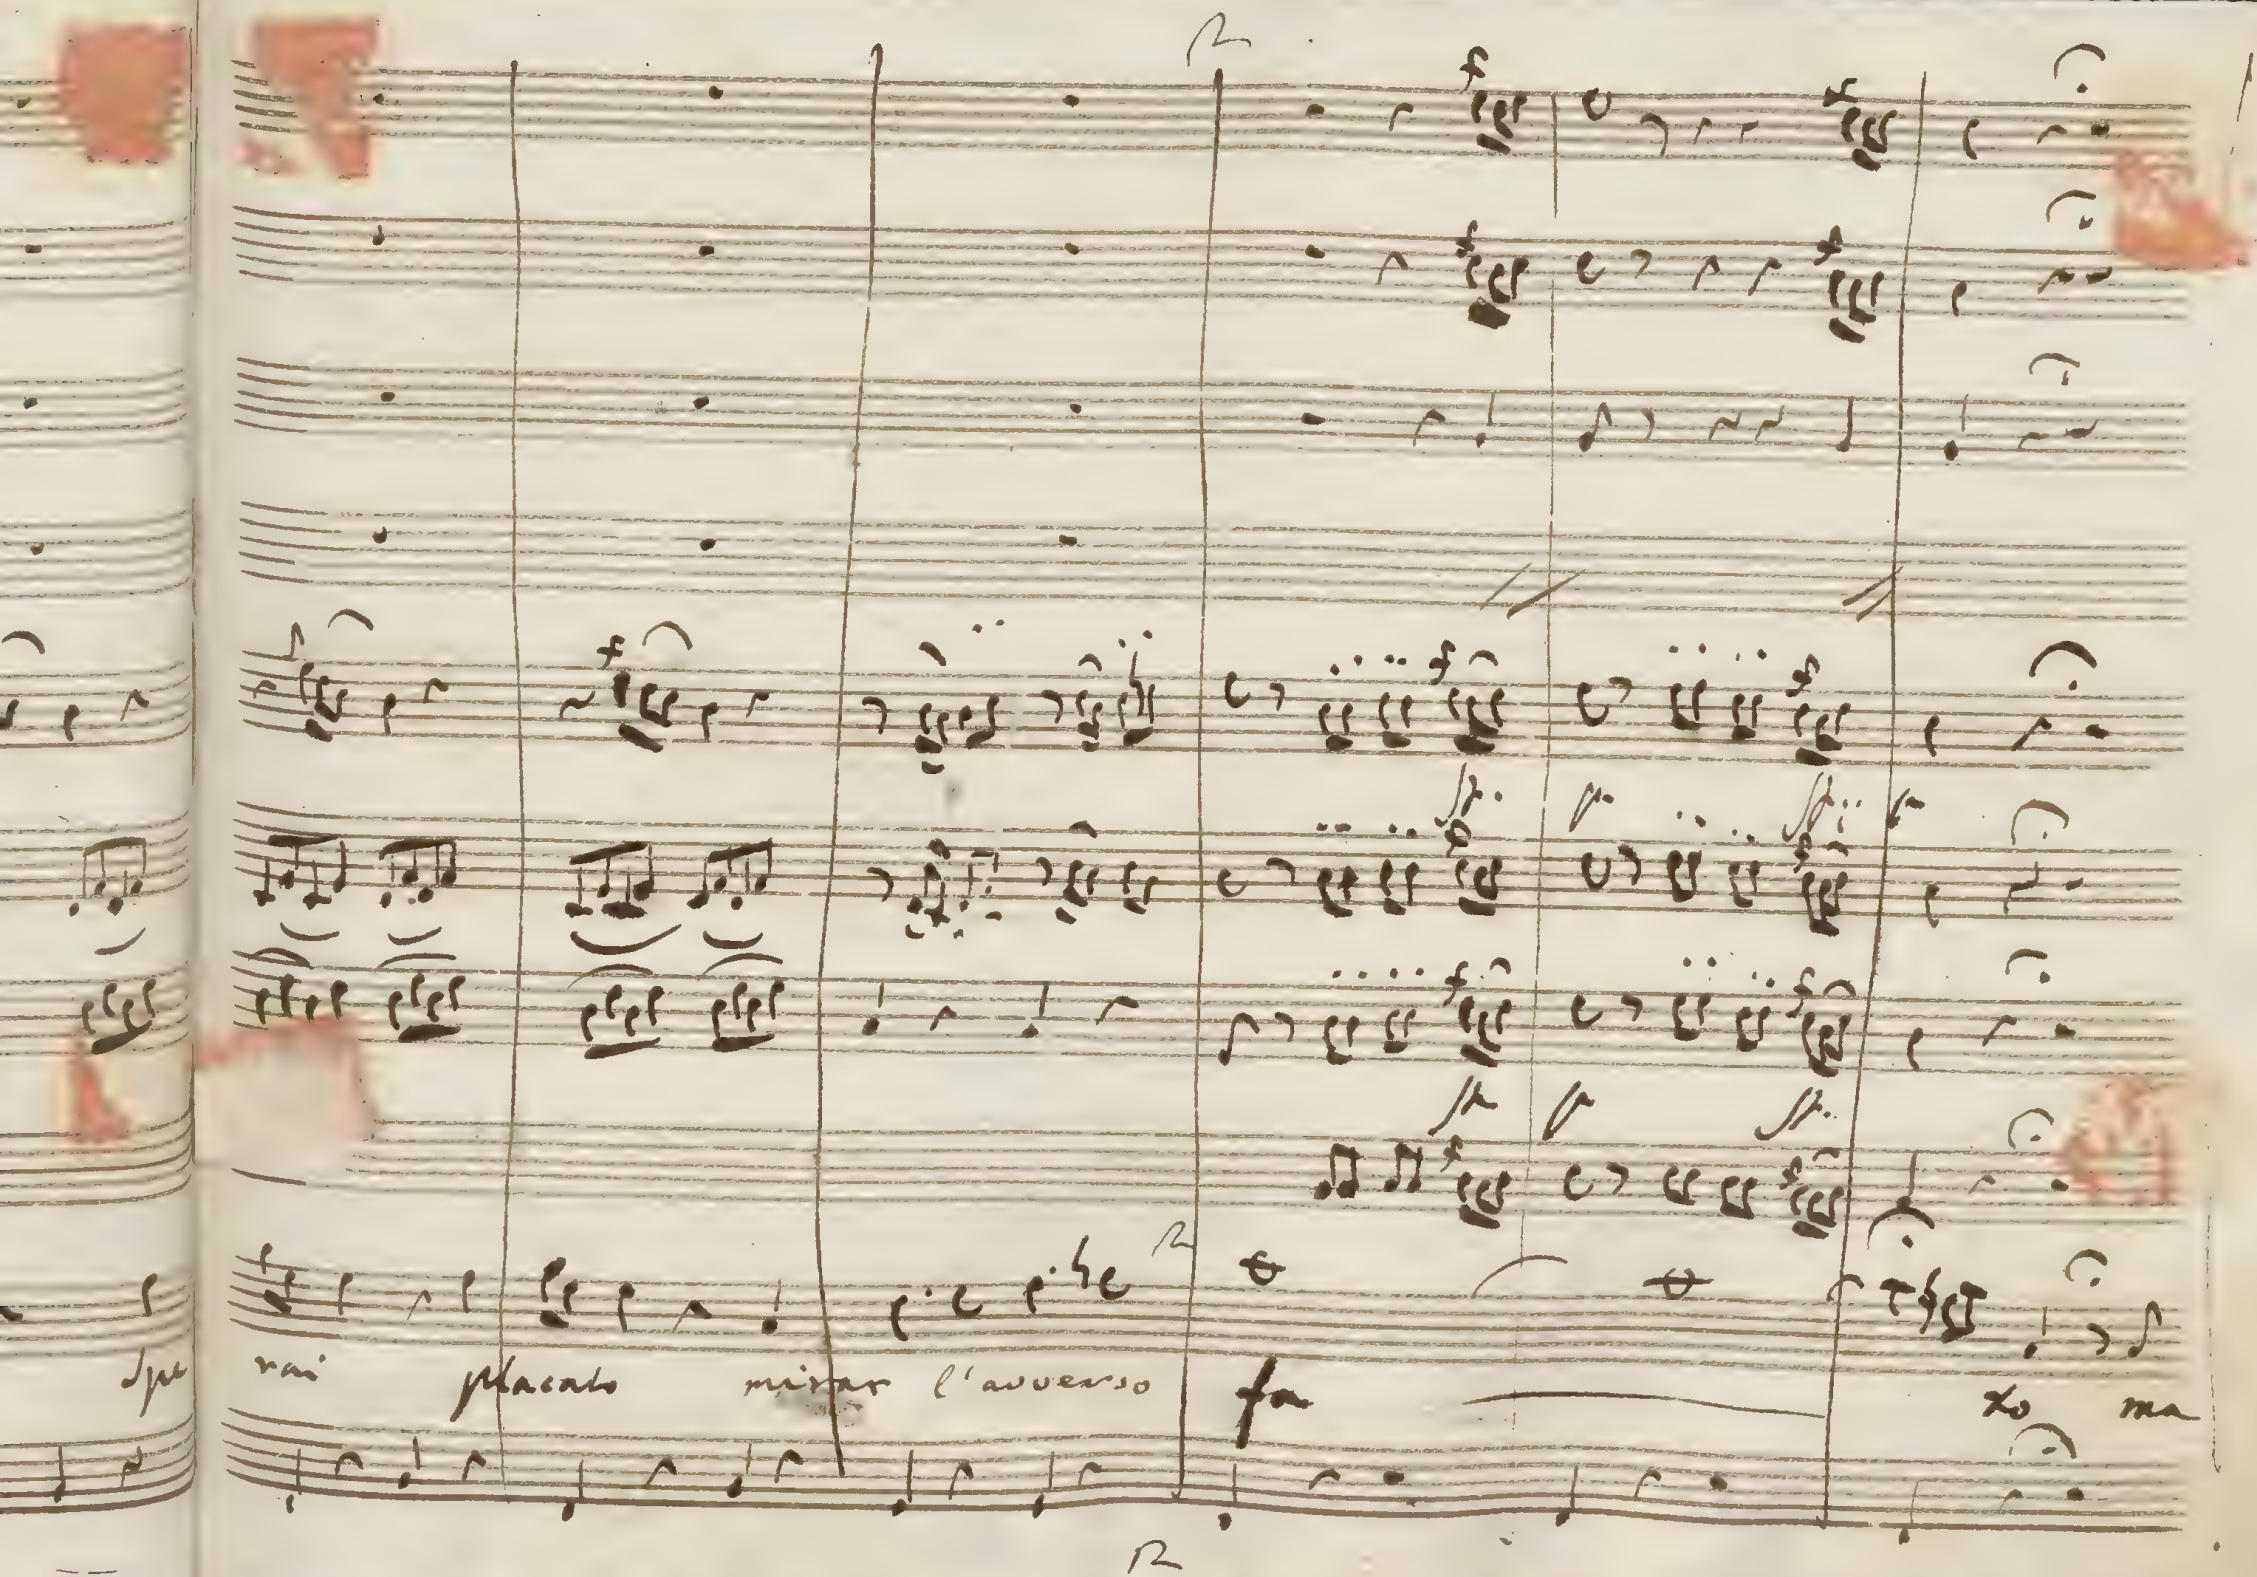 spe rai placato mirar l'avverso fa to ma